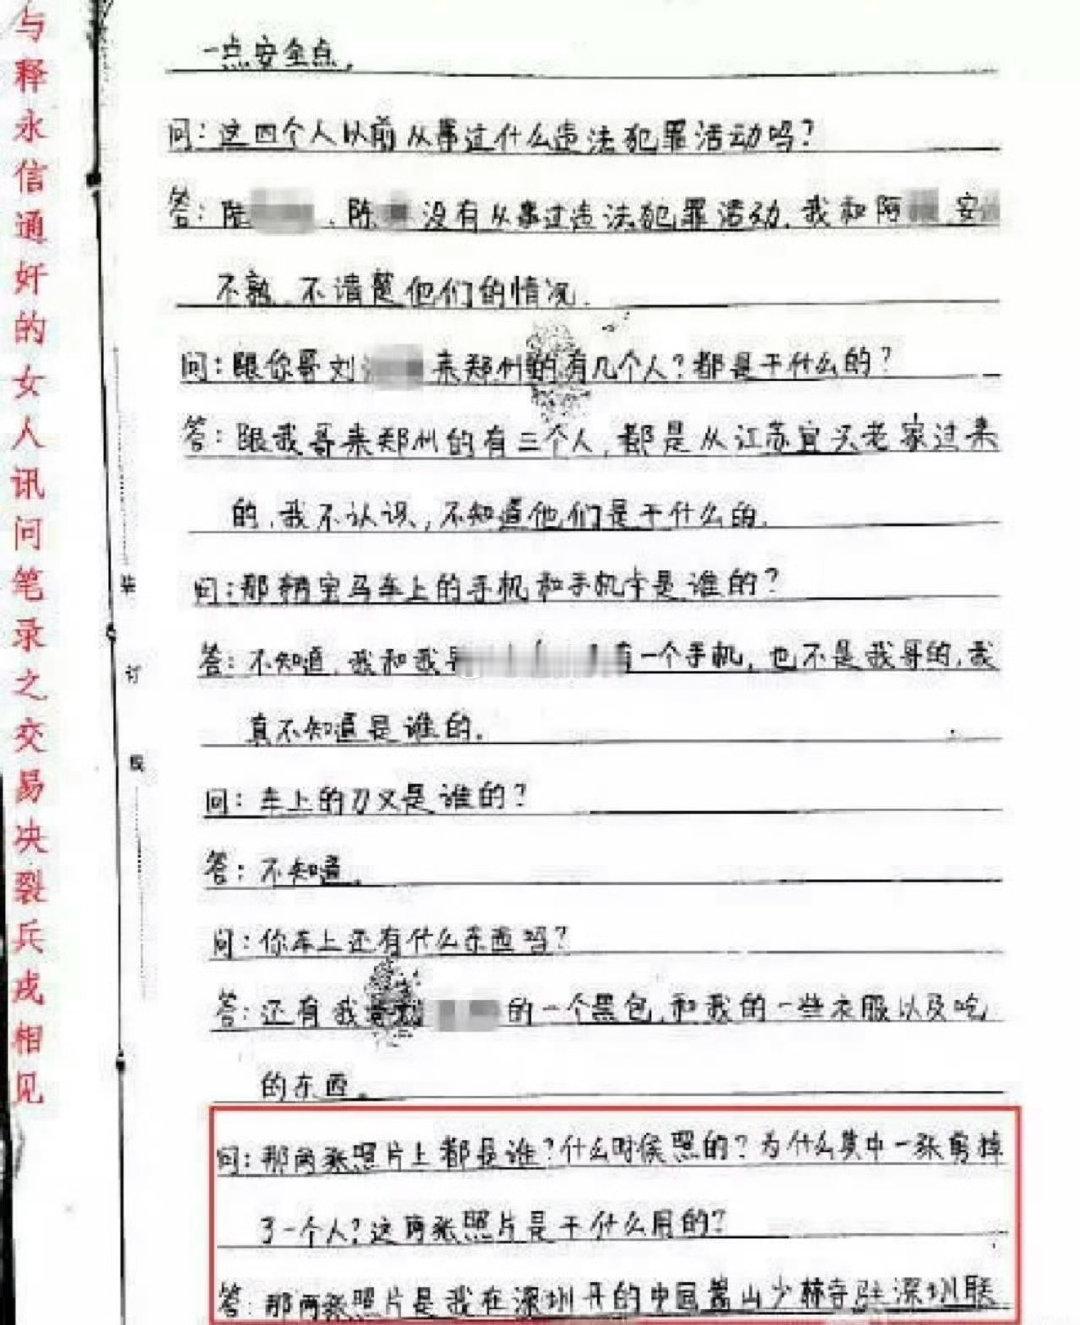 与释永信通奸的女人讯问笔录之交易决裂兵戎相见
一点安全点。
问：这四个人以前从事过什么违法犯罪活动吗？
答：陆、陈没有从事过违法犯罪活动，我和阿安
不熟，不清楚他们的情况。
问：跟你哥刘来郑州的有几个人？都是干什么的？
答：跟我哥来郑州的有三个人，都是从江苏宜兴老家过来
的，我不认识，不知道他们是干什么的。
问：那辆宝马车上的手机和手机卡是谁的？
答：不知道，我和我有一个手机，也不是我哥的，我
真不知道是谁的。
问：车上的刀又是谁的？
答：不知道。
问：你车上还有什么东西吗？
答：还有我哥刘的一个黑包，和我的一些衣服以及吃
的东西。
问：那两张照片上都是谁？什么时候照的？为什么其中一张剪掉
了一个人？这两张照片是干什么用的？
答：那两张照片是我在深圳开的中国嵩山少林寺驻深圳联
装
订
线